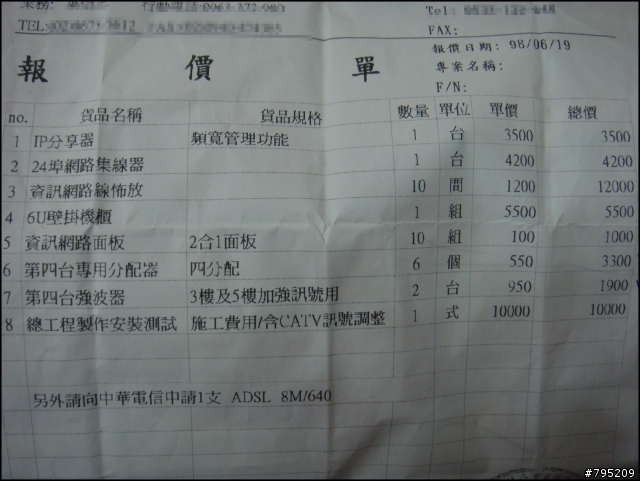 行動電話:0963-372-980
TEL:
FAX:
報價日期: 98/06/19
報價單
專案名稱:
F/N:
no. 貨品名稱 貨品規格 數量 單位 單價 總價
1 IP分享器 頻寬管理功能 1 台 3500 3500
2 24埠網路集線器 1 台 4200 4200
3 資訊網路線佈放 10 間 1200 12000
4 6U壁掛機櫃 1 組 5500 5500
5 資訊網路面板 2合1面板 10 組 100 1000
6 第四台專用分配器 四分配 6 個 550 3300
7 第四台強波器 3樓及5樓加強訊號用 2 台 950 1900
8 總工程製作安裝測試 施工費用/含CATV訊號調整 1 式 10000 10000
另外請向中華電信申請1支 ADSL 8M/640
#795209